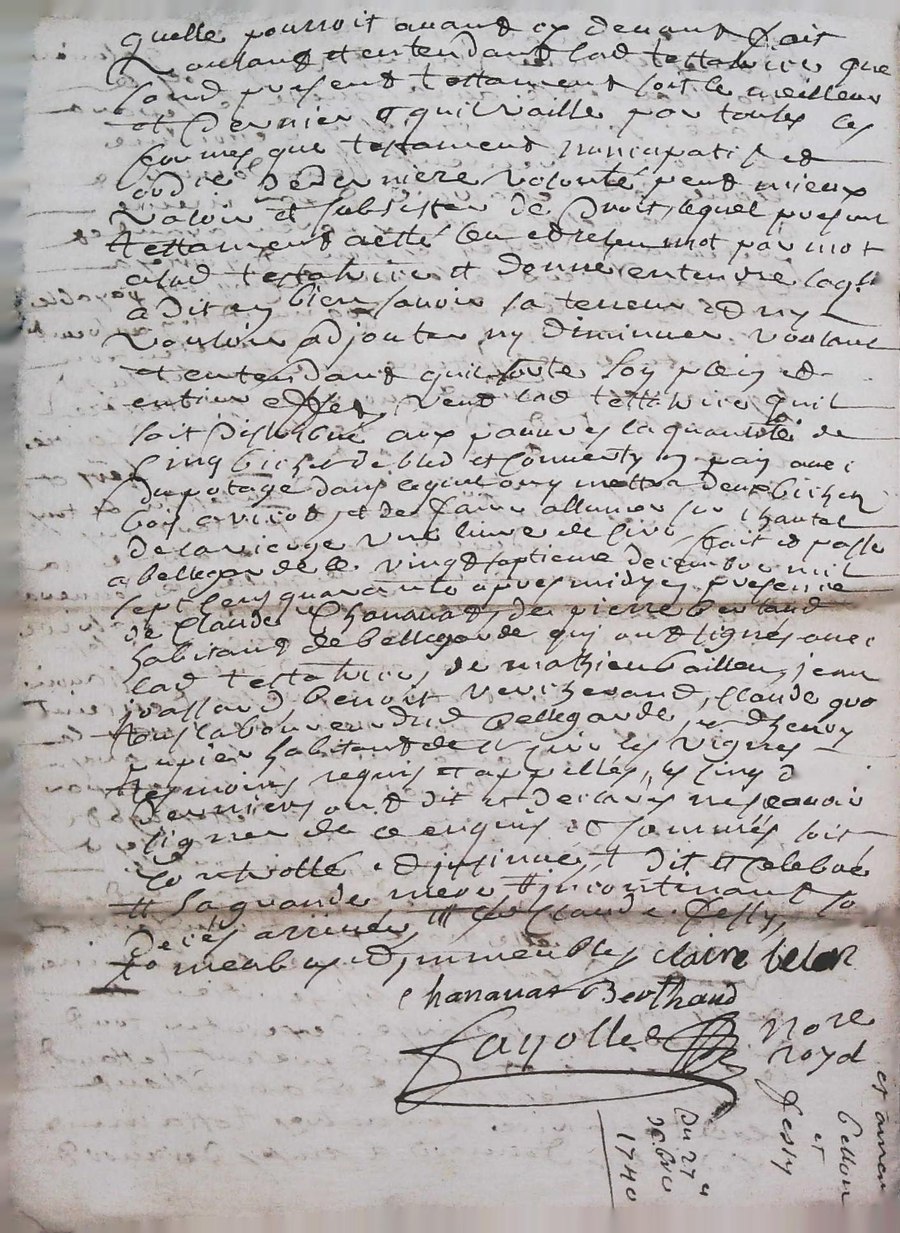 quelle pourroit avant cy devant fait
voulant et entendant lad testatrice que
sond present testament soit le meilleur
et dernier et quil vaille par toutes les
formes que testament nuncupatif et
ordre de derniere volonté peut mieux
valoir et subsister de droit, lequel present
testament a esté leu et releu mot par mot
a lad testatrice et donné entendre laq.lle
a dit en bien savoir sa teneur et ny
vouloir adjouter ny diminuer voulant
et entendant quil sorte son plein et
entier effet, veut lad testatrice quil
soit distribué aux pauvres la quantité de
cinq bichet de bled et converty en pain avec
du potage dans lequel on y mettra deux bichet
haricot, et de faire allumer sur lhautel
de la vierge une livre de cire, fait et passé
a bellegarde le vingt septieme decembre mil
sept cens quarante apres midy en presence
de Claude Chanavat, de pierre bertaud
habitant de bellegarde qui ont signés avec
lad testatrice, de mathieu bailleu, jean
jvassard, benoit vericherand, Claude
tous laboureur dud bellegarde, et
habitant de st Cire les vignes
temoins requis et appellés, les cinq
derniers ont dit et declarés ne scavoir
signer de ce enquis et sommés soit
controllé et insinué, dit et celebré
sa grande mere incontinant so
deces arrivée, Claude fessy,
meubles et immeubles claire
Chanavat Berthaud
fayolle nore
royd
du 27e
xbre
1740
fessy
et